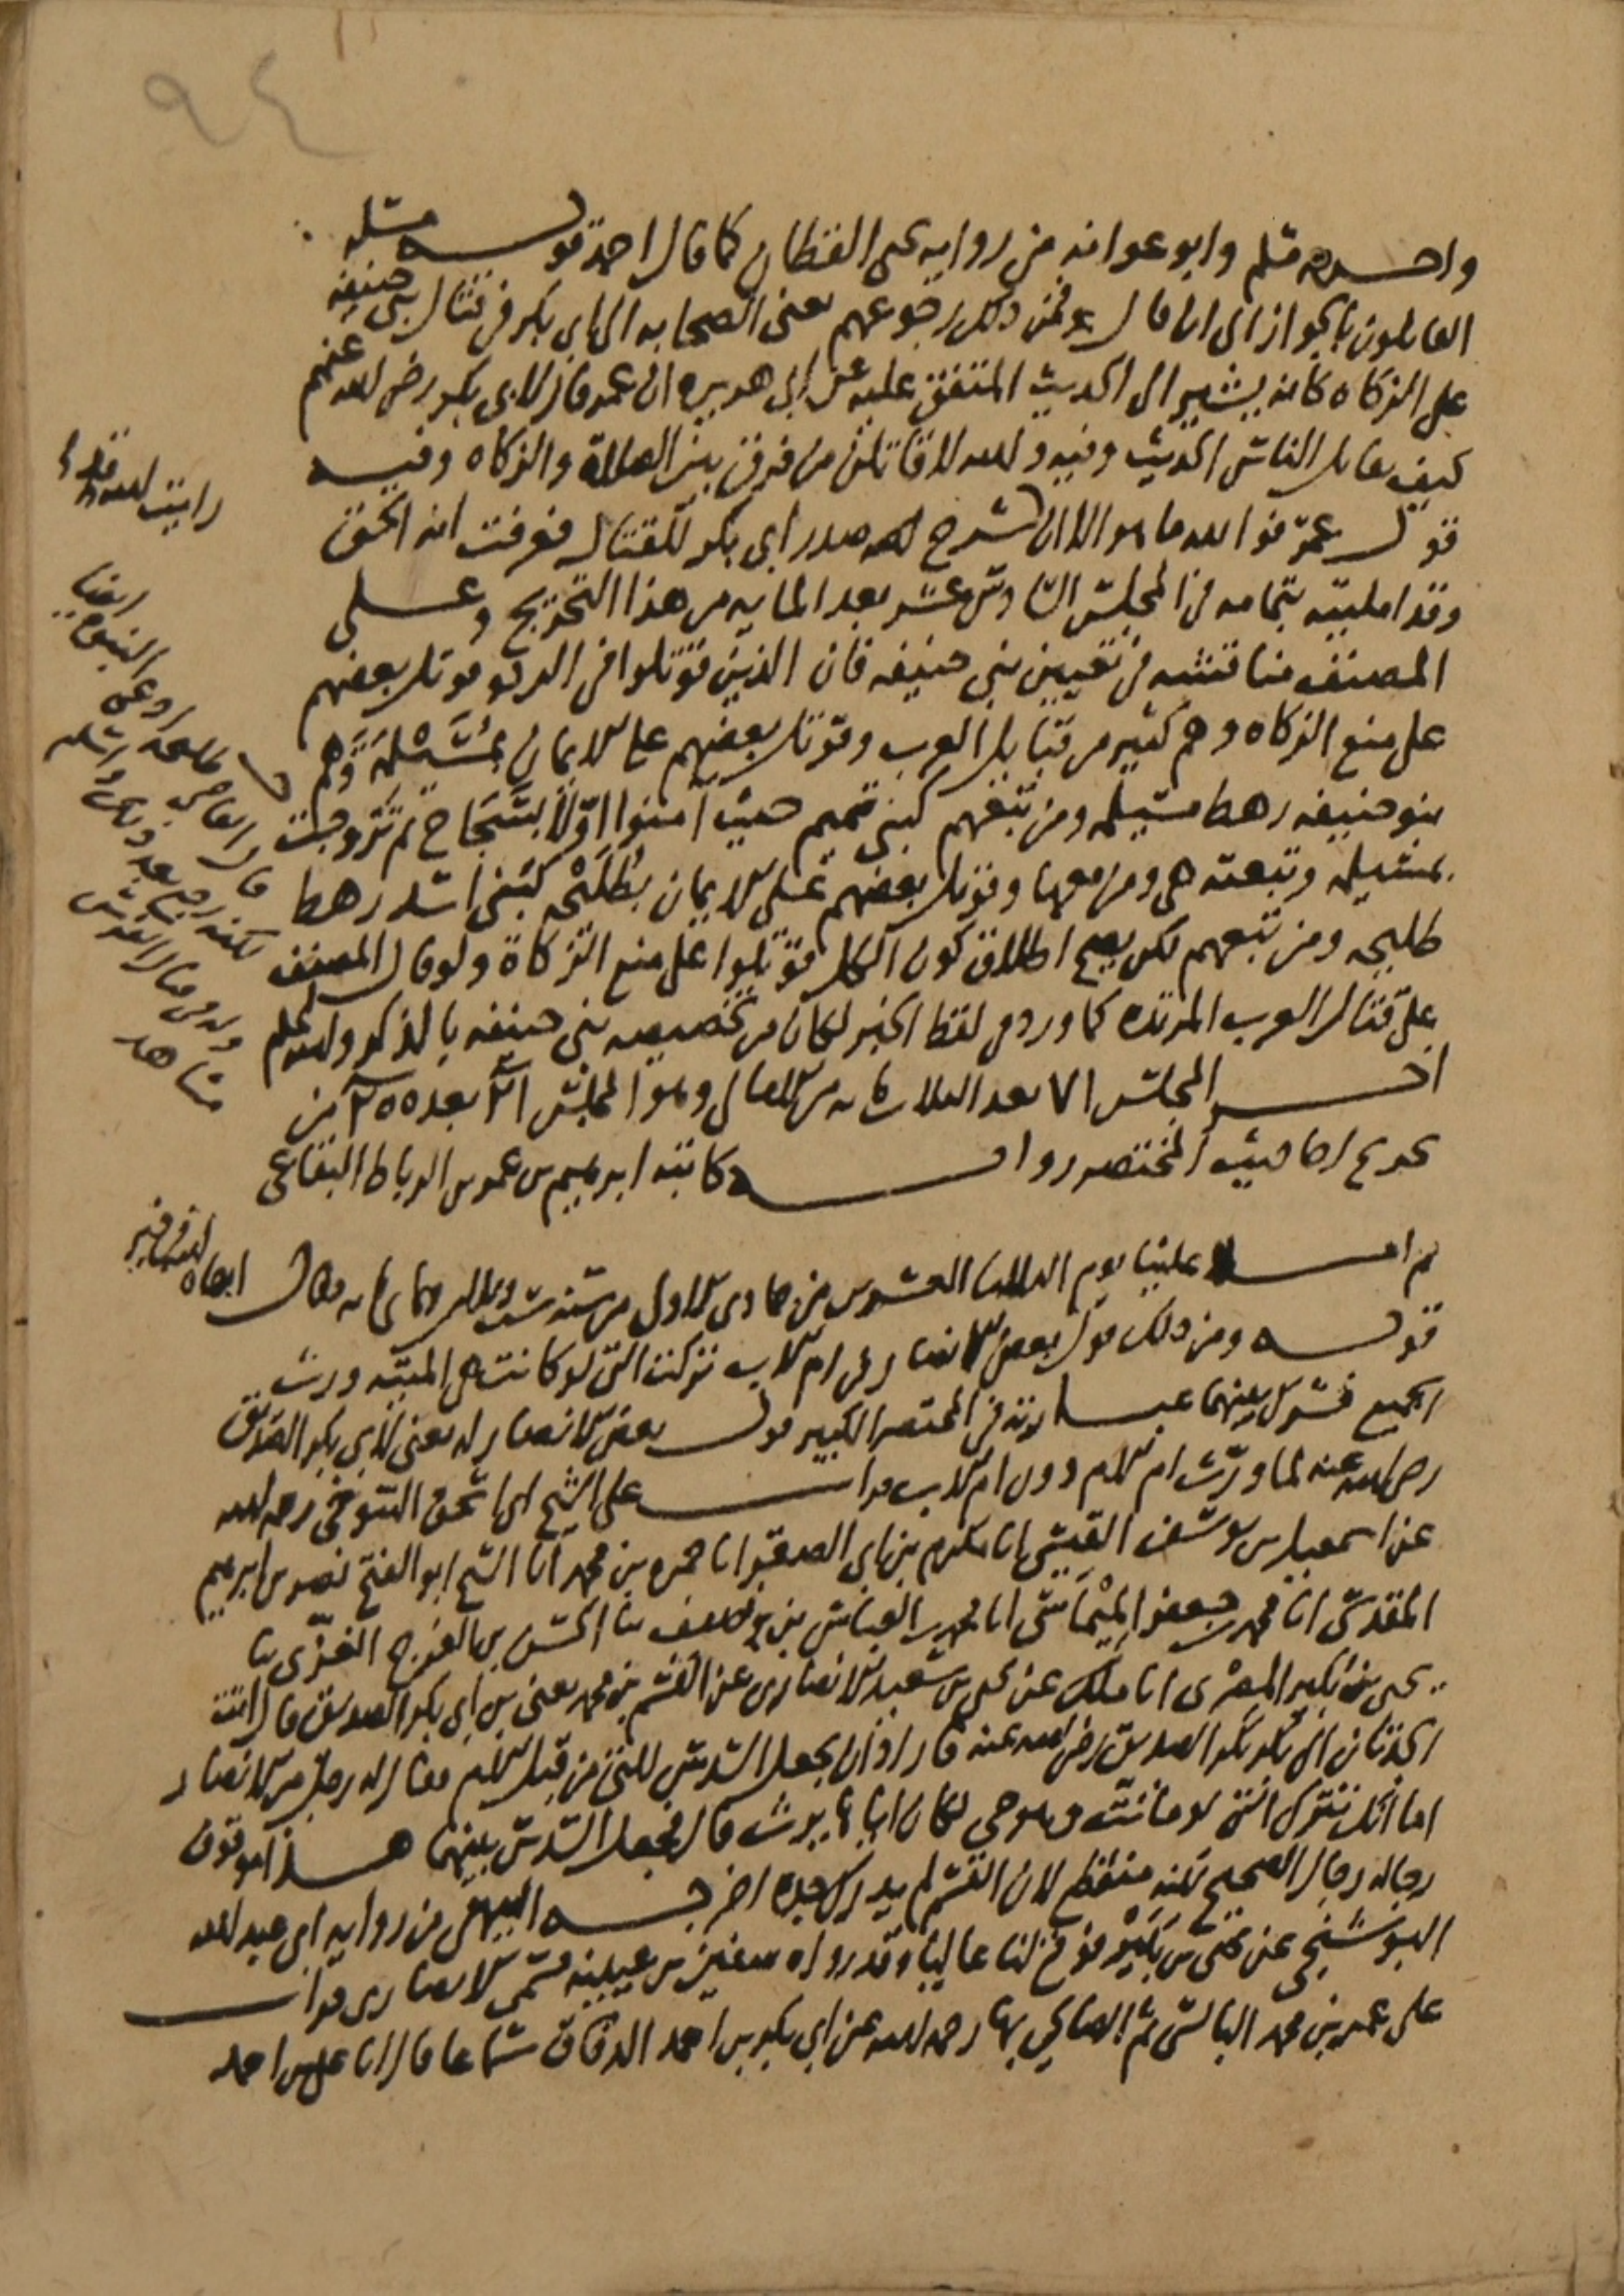 ٩٤
واخرجه مسلم وابو عوانه من روايه يحيى القطان كما قال احمد قوله مسله
القايلون بالجواز الى ان قال فمن ذلك رجوعهم يعنى الصحابه الى ابى بكر فى قتال بنى حنيفه
على الزكاه كانه يشير الى الحديث المتفق عليه عن ابى هريره ان عمر قال لابى بكر رضى الله عنهم
كيف نقاتل الناس الحديث وفيه والله لاقاتلن من فرق بين الصلاة والزكاه وفيه
قول عمر فوالله ما هو الا ان شرح الله صدر ابى بكر للقتال فعرفت انه الحق
وقد امليته بتمامه فى المجلس السادس عشر بعد المايه من هذا التخريج وعلى
المصنف مناقشه فى تعيين بنى حنيفه فان الذين قوتلوا فى الرده قوتل بعضهم
على منع الزكاه وهم كثير من قبايل العرب وقوتل بعضهم على الايمان بمُسَيْلمَة وَهم
بنو حنيفه رهط مسيلمه ومن تبعهم كبنى تميم حيث آمنوا اوّلا بسَجَاح ثم تزوجت
بمسيلمه وتبعته هى ومن معها وقوتل بعضهم على الايمان بطُلَيْحَه كبنى اسد رهط
طليحه ومن تبعهم لكن يصح اطلاق كون الكل قوتلوا على منع الزكاة ولو قال المصنف
على قتال العرب المرتده كما ورد فى لفظ الخبر لكان من تخصيص بنى حنيفه بالذكر والله اعلم
اخر المجلس ٧١ بعد الثلاث مايه من الامالى وهو المجلس ٢١ بعد ٢٥٥ من
تخريج احاديث المختصر روايه كاتبه ابرهيم بن عمر بن الرباط البقاعى
ثم املا علينا يوم الثلاثا العشرين من جمادى الاول من سنه ست وثلاثين وثمانمايه فقال ابقاه الله فى خير
قوله ومن ذلك قول بعض الانصار فى ام الاب تركت التى لو كانت هى الميته ورث
الجميع فشرك بينهما عبارته فى المختصر الكبير قول بعض الانصار له يعنى لابى بكر الصديق
رضى الله عنه لما ورّث ام الام دون ام الاب قرات على الشيخ ابى اسحق التنوخى رحمه الله
عن اسمعيل بن يوسف القيسى انا مكرم بن ابى الصقر انا حمزه بن محمد انا الشيخ ابو الفتح نصر بن ابرهيم
المقدسى انا محمد بن جعفر المِيْمَاسى انا محمد بن العباس بن وصيف ثنا الحسن بن الفرج الغزّى ثنا
يحيى بن بُكير المصْرى انا ملك عن يحيى بن سعيد الانصارى عن القسم بن محمد يعنى بن ابى بكر الصديق قال اتت
الجدتان الى ابى بكر الصديق رضى الله عنه فاراد ان يجعل السدس للتى من قبل الام فقال له رجل من الانصار
اما انك تترك التى لو ماتت وهو حى لكان اياها يرث قال فجعل السدس بينهما هذا موقوف
رجاله رجال الصحيح لكنه منقطع لان القسم لم يدرك جده اخرجه البيهقى من روايه ابى عبد الله
البوسنجى عن يحيى بن بُكَيْر فوقع لنا عاليا وقد رواه سفين بن عيينه فسمى الانصارى قرات
على عمر بن محمد البالسى ثم الصالحى بها رحمه الله عن ابى بكر بن احمد الدقاق سماعا قال انا على بن احمد
رايت
ايضا
طليحه ادعى النبوه
قال
لكنه رجع بعد ذلك
القادسيه
مشاهد